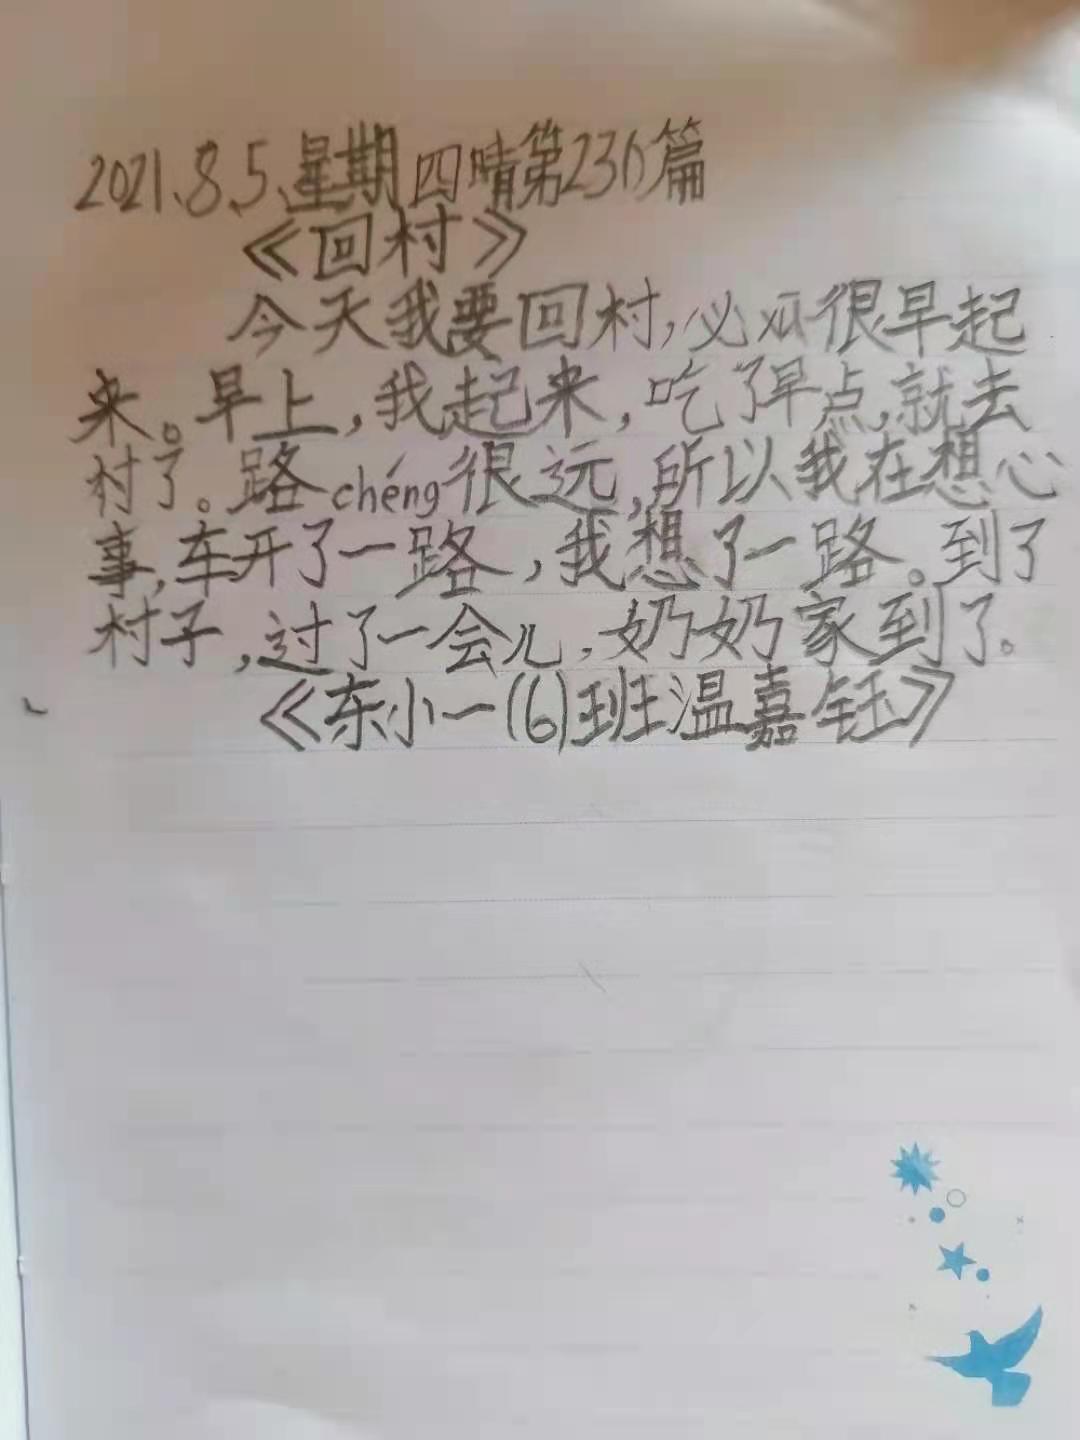 2021、8、5、星期四晴第236篇
《回村》
今天我要回村,必须很早起
来。早上,我起来,吃了早点,就去
村了。路chéng很远,所以我在想心
事,车开了一路,我想了一路。到了
村子,过了一会儿,奶奶家到了。
《东小一(6)班温嘉钰》